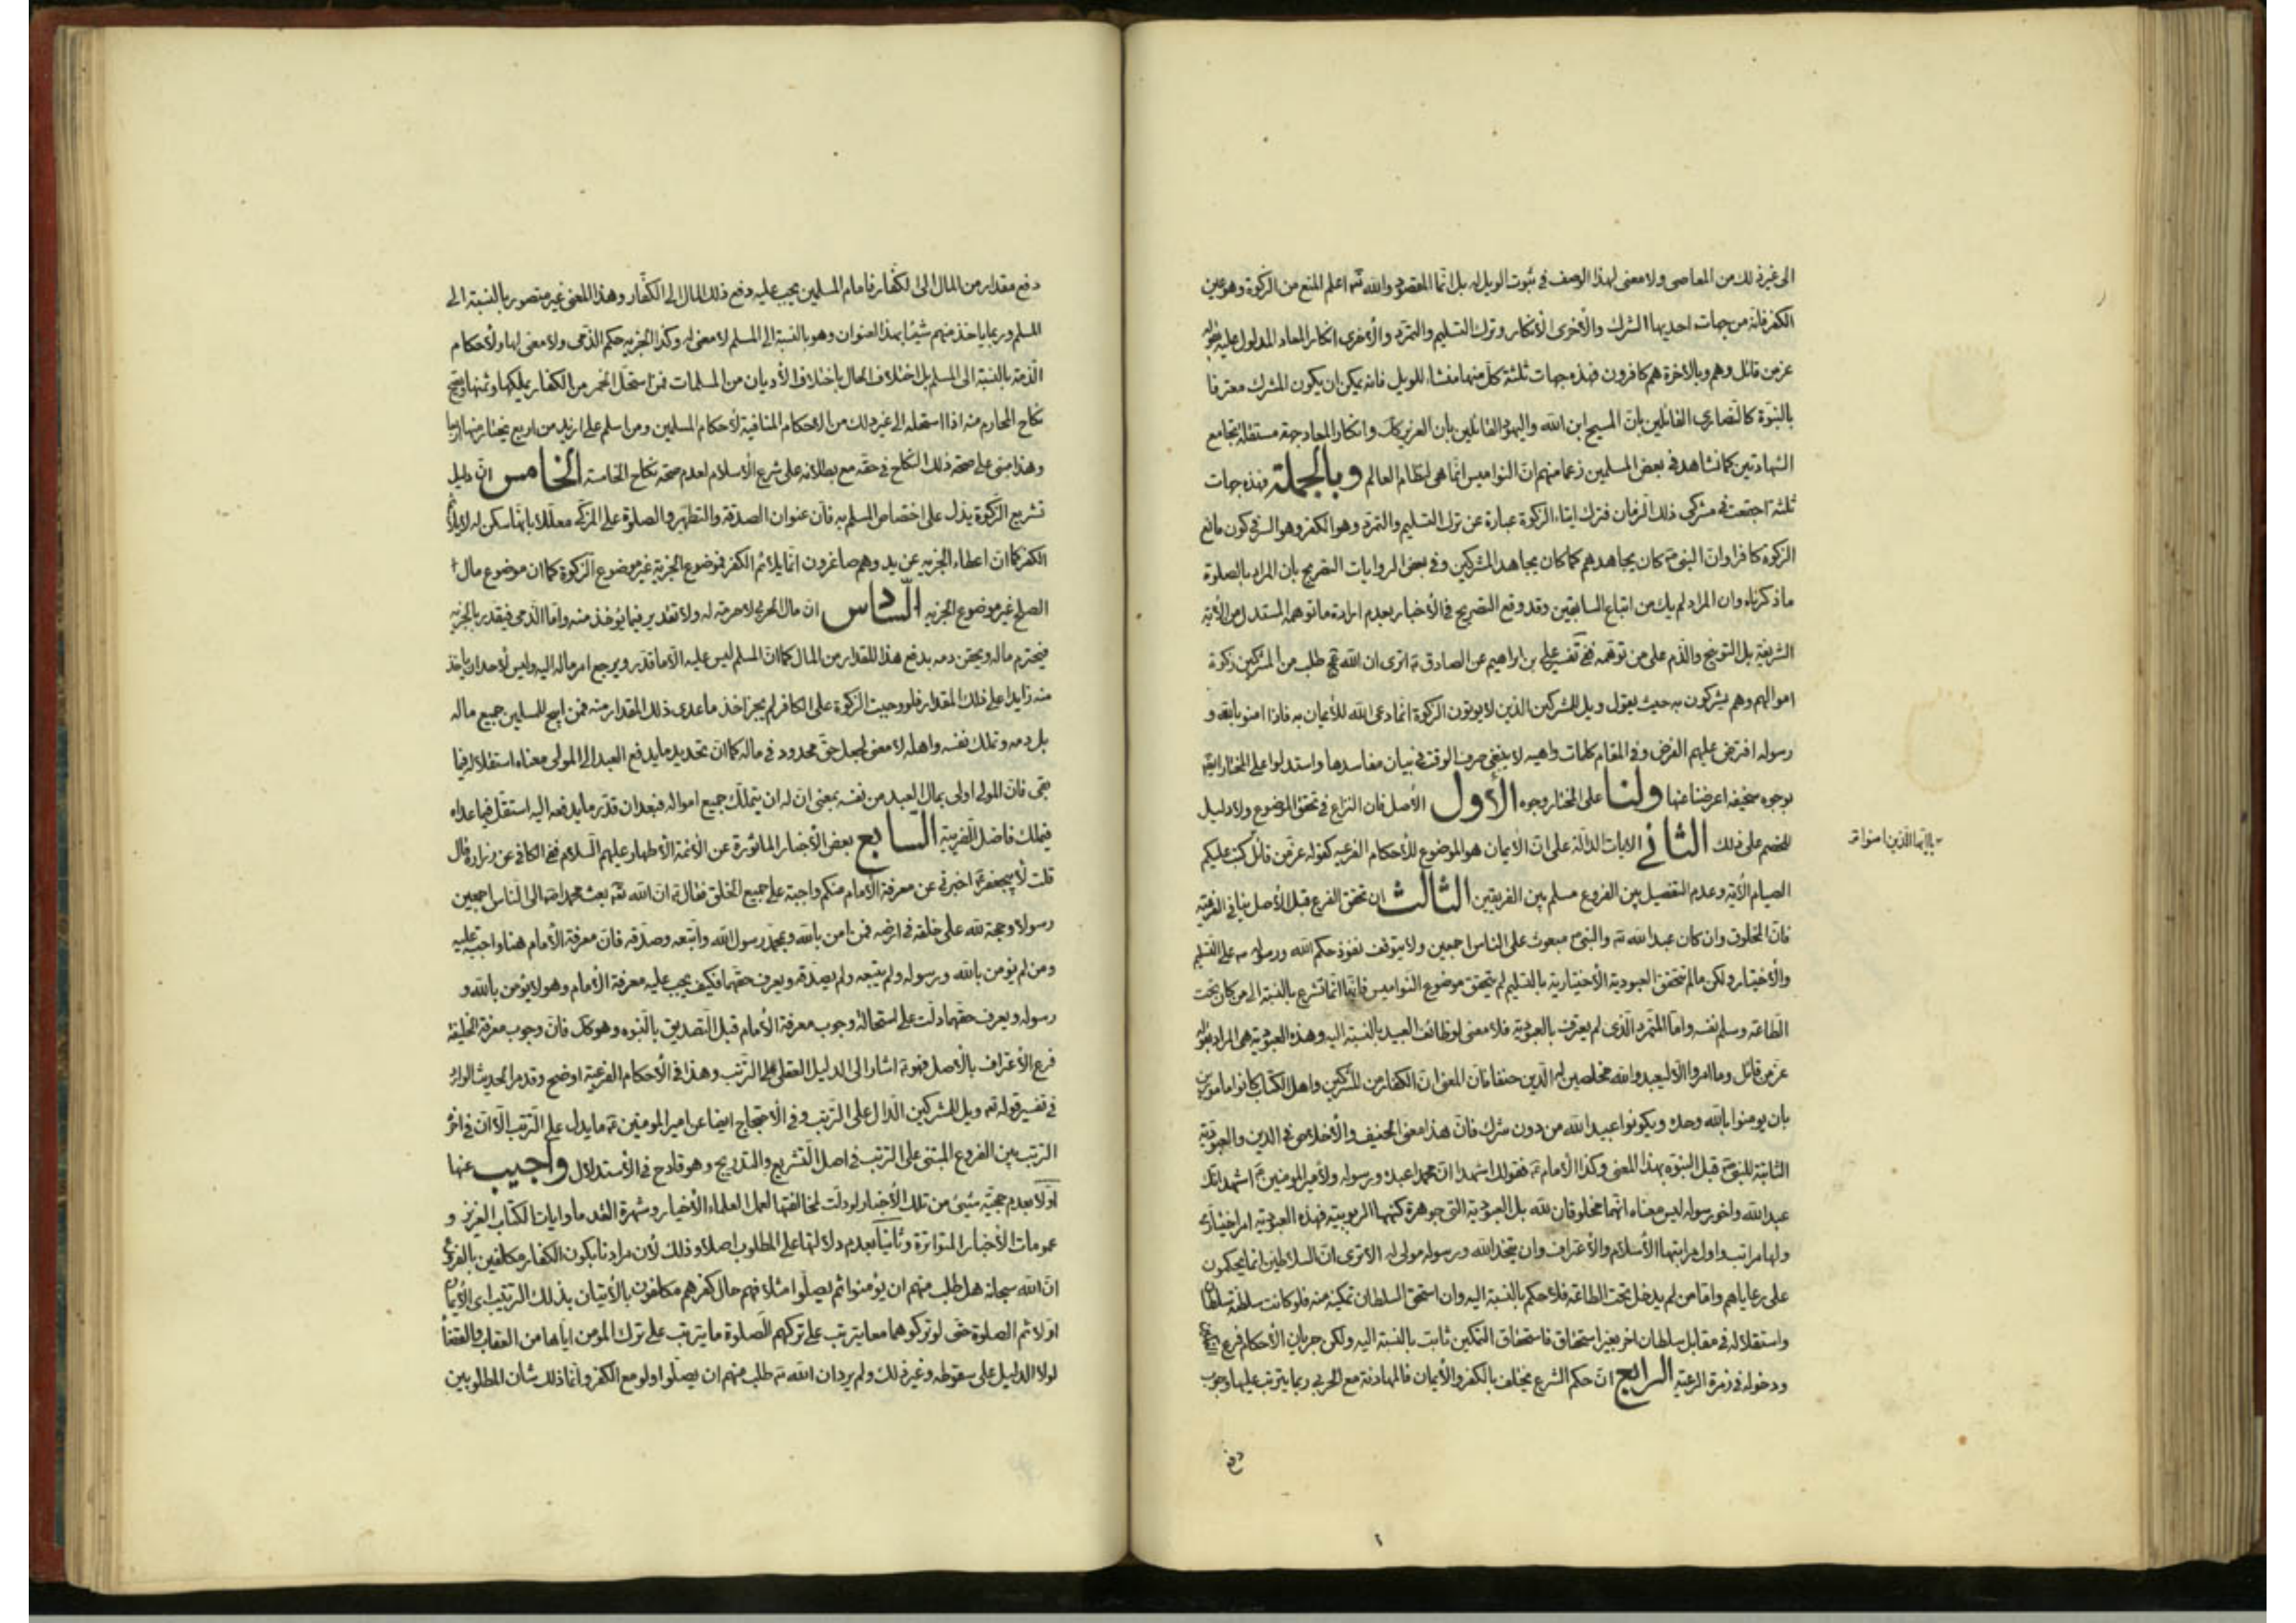 الى غير ذلك من المعاصى ولا معنى لهذا الوصف فى ثبوت الويل له بل انما المقصود والله تع اعلم المنع من الزكوة وهو عين
الكفر فانه من جهات احديها الشرك والأخرى الأنكار وترك التسليم والتمرد والأخرى انكار المعاد المدلول عليه بقوله
عز من قائل وهم بالاخرة هم كافرون فهذه جهات ثلثة كل منها منشاء للويل فانه يمكن ان يكون المشرك معترفا
بالنبوة كالنصارى القائلين بان المسيح ابن الله واليهود القائلين بان العزير كك وانكار المعاد جهة مستقلة يجامع
الشهادتين كما نشاهد فى بعض المسلمين زعما منهم ان النواميس انما هى لنظام العالم وبالجملة فهذه جهات
ثلثة اجتمعت فى مشركى ذلك الزمان فترك ايتاء الزكوة عبارة عن ترك التسليم والتمرد وهو الكفر وهو السر فى كون مانع
الزكوة كافرا وان النبى ص كان يجاهدهم كما كان يجاهد المشركين وفى بعض الروايات التصريح بان المراد بالصلوة
ما ذكرناه وان المراد لم يك من اتباع السابقين وقد وقع التصريح فى الأخبار بعدم ارادة ما توهمه المستدل من الأية
الشريفة بل التوبيخ والذم على من توهمه ففى تفسير على بن ابراهيم عن الصادق ع اترى ان الله تع طلب من المشركين زكوة
اموالهم وهم يشركون به حيث يقول ويل للمشركين الذين لا يؤتون الزكوة انما دعى الله للأيمان به فاذا امنوا بالله و
رسوله افترض عليهم الفرض وفى المقام كلمات واهيه لا ينبغى صرف الوقت فى بيان مفاسدها واستدلوا على المختار ايضا
بوجوه سخيفه اعرضنا عنها ولنا على المختار وجوه الأول الأصل فان النزاع فى تحقق الموضوع ولا دليل
للخصم على ذلك الثانى الايات الدالة على ان الأيمان هو الموضوع للأحكام الفرعيه كقوله عز من قائل كتب عليكم
يا ايها الذين امنوا
الصيام الأية وعدم التفصيل بين الفروع مسلم بين الفريقين الثالث ان تحقق الفرع قبل الأصل ينافى الفرعية
فان المخلوق وان كان عبدا لله تع والنبى ص مبعوث على الناس اجمعين ولا يتوقف نفوذ حكم الله ورسوله ص على التسليم
والأختيار ولكن مالم يتحقق العبودية الأختيارية بالتسليم لم يتحقق موضوع النواميس فانها انما تشرع بالنسبة الى من كان تحت
الطاعة وسلم نفسه واما المتمرد الذى لم يعترف بالعبودية فلا معنى لوظائف العبيد بالنسبة اليه وهذه العبودية هى المراد بقوله
عز من قائل وما امروا الا ليعبدوا الله مخلصين له الدين حنفاء فان المعنى ان الكفار من المشركين واهل الكتاب كانوا مامورين
بان يومنوا بالله وحده ويكونوا عبيد الله من دون شرك فان هذا معنى الحنيف والأخلاص فى الدين والعبودية
الثابتة للنبى ص قبل النبوه بهذا المعنى وكذا الأمام ع فقولك اشهد ان محمدا عبده ورسوله ولأمير المومنين ع اشهد انك
عبد الله واخو رسوله ليس معناه انهما مخلوقان لله بل العبودية التى جوهرة كنهها الربوبية فهذه العبودية امر اختيارى
ولها مراتب واول مراتبها الأسلام والأعتراف وان يتخذ الله ورسوله مولى له الا ترى ان السلاطين انما يحكمون
على رعاياهم واما من لم يدخل تحت الطاعة فلا حكم بالنسبة اليه وان استحق السلطان تمكينه منه فلو كانت سلطنة سلطان
واستقلاله فى مقابل سلطان اخر بغير استحقاق فاستحقاق التمكين ثابت بالنسبة اليه ولكن جريان الأحكام فرع
ودخوله فى زمرة الرعية الرابع ان حكم الشرع يختلف بالكفر والأيمان فالمهادنة مع الحربى ربما يترتب عليها وجوب
دفع
دفع مقدار من المال الى الكفار فامام المسلمين يجب عليه دفع ذلك المال الى الكفار وهذا المعنى غير متصور بالنسبة الى
المسلم وربما ياخذ منهم شيئا بهذا العنوان وهو بالنسبة الى المسلم لا معنى له وكذا الجزيه حكم الذمى ولا معنى لها ولأحكام
الذمة بالنسبة الى المسلم بل اختلاف الحال باختلاف الأديان من المسلمات فمن استحل الخمر من الكفار يملكها وثمنها ويصح
نكاح المحارم منه اذا استحله الى غير ذلك من الاحكام المنافية لأحكام المسلمين ومن اسلم على ازيد من اربع يختار منها اربعا
وهذا مبنى على صحة ذلك النكاح فى حقه مع بطلانه على شرع الأسلام لعدم صحة نكاح الخامسة الخامس ان دليل
تشريع الزكوة يدل على اختصاص المسلم به فان عنوان الصدقة والتطهير والصلوة على المزكى معللا بانها سكن له لا يلائم
الكفر كما ان اعطاء الجزيه عن يد وهم صاغرون انما يلائم الكفر فموضوع الجزية غير موضوع الزكوة كما ان موضوع مال
الصلح غير موضوع الجزيه السادس ان مال الحربى لا حرمة له ولا تقدير فيما يؤخذ منه واما الذمى فيقدر بالجزيه
فيحترم ماله ويحقن دمه بدفع هذا المقدار من المال كما ان المسلم ليس عليه الا ما قدر ويرجع امر ماله اليه وليس لأحد ان ياخذ
منه زايدا على ذلك المقدار فلو وجبت الزكوة على الكافر لم يجز اخذ ما عدى ذلك المقدار منه فمن ابيح للمسلمين جميع ماله
بل دمه وتملك نفسه واهله لا معنى لجعل حق محدود فى ماله كما ان تحديد ما يدفع العبد الى المولى معناه استقلاله فيما
بقى فان المولى اولى بمال العبد من نفسه بمعنى ان له ان يتملك جميع امواله فبعد ان قدر ما يدفعه اليه استقل فيما عداه
فيملك فاضل الضريبة السابع بعض الأخبار الماثورة عن الأئمة الأطهار عليهم السلام ففى الكافى عن زرارة قال
قلت لأبيجعفر ع اخبرنى عن معرفة الأمام منكم واجبة على جميع الخلق فقال ع ان الله تع بعث محمدا ص الى الناس اجمعين
رسولا وحجة لله على خلقه فى ارضه فمن امن بالله وبمحمد رسول الله واتبعه وصدقه فان معرفة الأمام منا واجبة عليه
ومن لم يؤمن بالله ورسوله ولم يتبعه ولم يصدقه ويعرف حقهما فكيف يجب عليه معرفة الأمام وهو لا يؤمن بالله و
رسوله ويعرف حقهما دلت على استحالة وجوب معرفة الأمام قبل التصديق بالنبوه وهو كك فان وجوب معرفة الخليفة
فرع الأعتراف بالأصل فهو ع اشار الى الدليل العقلى على الترتب وهذا فى الأحكام الفرعية اوضح وقد مر الحديث الوارد
فى تفسير قوله تع ويل للمشركين الدال على الترتب وفى الأحتجاج ايضا عن امير المومنين ع ما يدل على الترتب الا ان فى اخره
الترتب بين الفروع المبتنى على الترتب فى اصل التشريع والتدريج وهو قادح فى الأستدلال واجيب عنها
اولا بعدم حجية شيئ من تلك الأخبار لو دلت لمخالفتها لعمل العلماء الأخيار وشهرة القدماء وايات الكتاب العزيز و
عمومات الأخبار المتواترة وثانيا بعدم دلالتها على المطلوب اصلا وذلك لأن مرادنا بكون الكفار مكلفين بالفروع
ان الله سبحانه هل طلب منهم ان يؤمنوا ثم يصلوا مثلا فهم حال كفرهم مكلفون بالأتيان بذلك الترتيب اى الأيمان
اولا ثم الصلوة حتى لو تركوهما معا يترتب على تركهم الصلوة ما يترتب على ترك المومن اياها من العقاب والقضاء
لولا الدليل على سقوطه وغير ذلك ولم يرد ان الله تع طلب منهم ان يصلوا ولو مع الكفر وانما ذلك شان المطلوبين